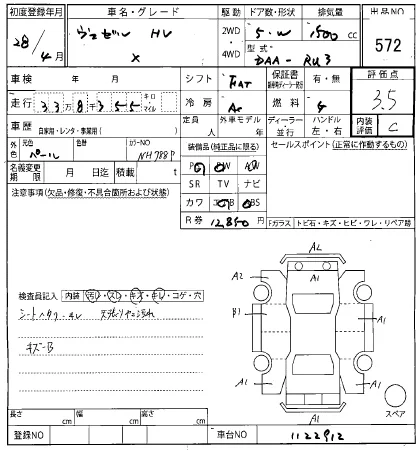 初度登録年月 車名・グレード 駆動 ドア数・形状 排気量 出品NO
28年 4月 ヴェゼル HV X 2WD 4WD 5・W 1500 cc 572
型式 DAA-RU3
車検 年 月 シフト FAT 保証書 有・無 評価点 3.5
走行 33万8千355 キロ・マイル 冷房 AC 外車モデル 年 燃料 G
車歴 自家用・レンタ・事業用( ) ディーラー 並行 ハンドル 左・右 内装評価 C
外色 元色 パール 色替 カラーNO NH788P
装備品(純正装備) セールスポイント(正常に作動するもの)
PS PW AW
名義変更期限 月 日迄 積載 t
SR TV ナビ
注意事項(欠品・修復・不具合箇所および状態)
カワ エアB ABS
R券 12,850円
Fガラス トビ石・キズ・ヒビ・ワレ・リペア跡
AL
A2 A1
検査員記入 内装 汚レ・スレ・キズ・キレ・コゲ・穴
B1 A1
キズ-B
A1 A1
A1
スペア
長さ cm 幅 cm 高さ cm
登録NO 車台NO 1122912